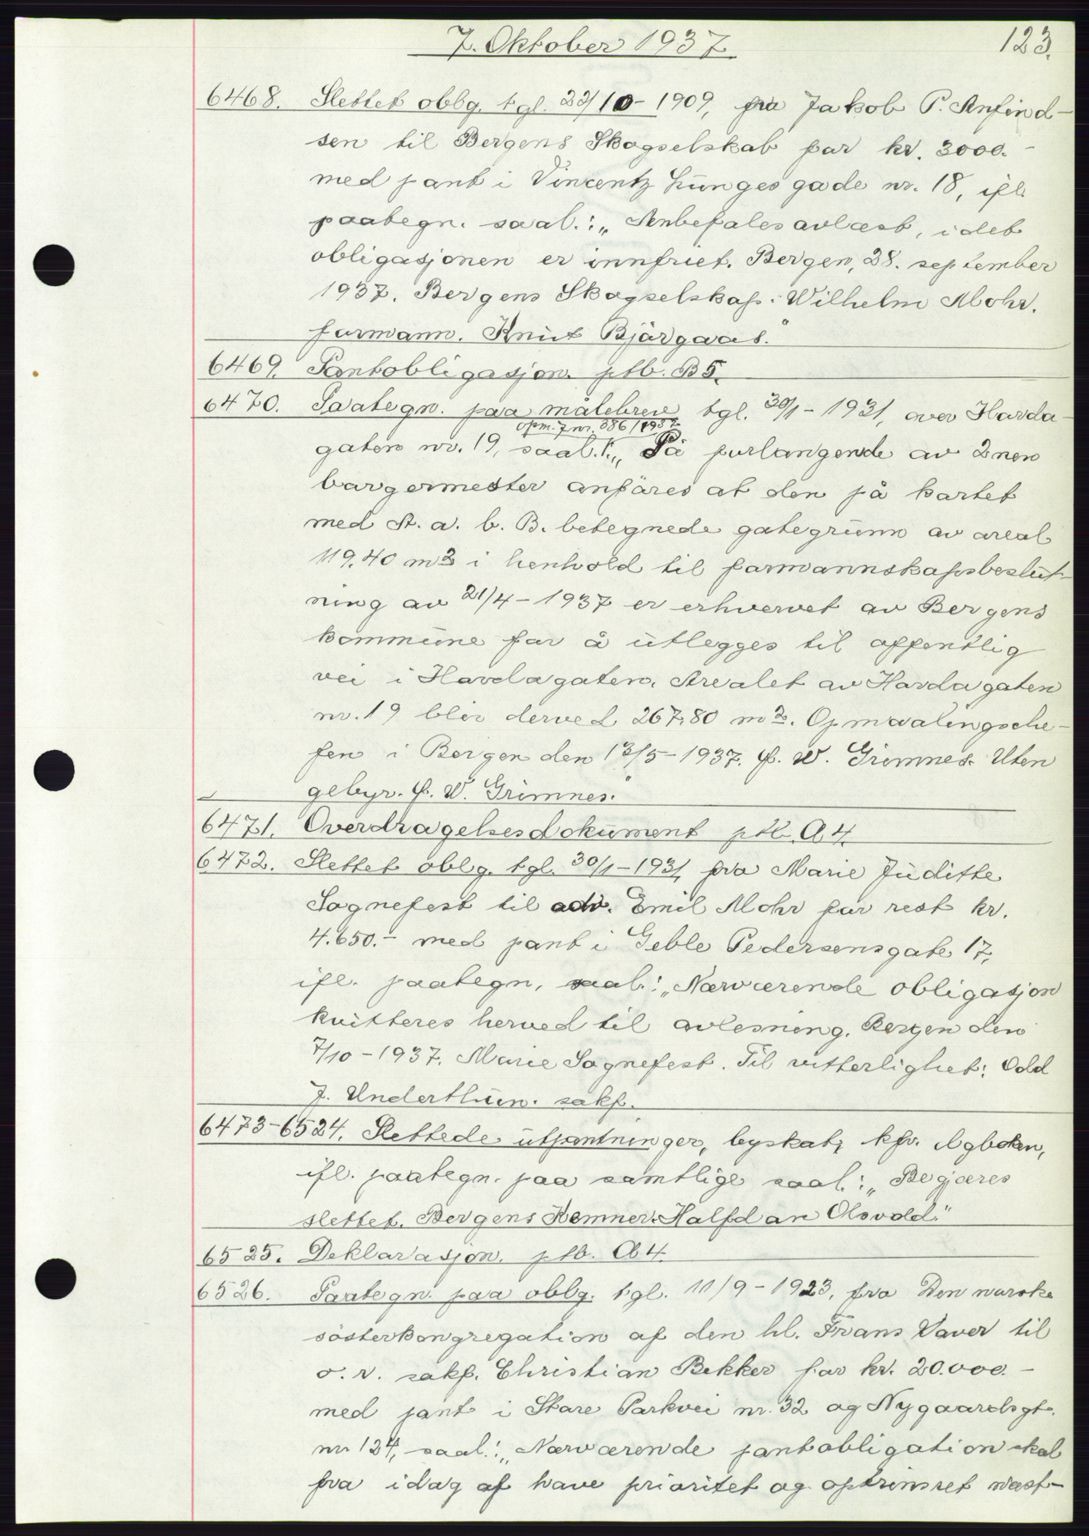 7. Oktober 1937.
123.
6468. Slettet obbg. tgl. 22/10 - 1909, fra Jakob P. Anfind-
sen til Bergens Skogselskab for kr. 3000.-
med pant i Vincentz Lünges gade nr. 18, ifl.
paategn. saal.: „Anbefales avlæst, idet
obligasjonen er innfriet. Bergen, 28. september
1937. Bergens Skogselskap. Wilhelm Mohr.
formann. Knut Bjørgaas."
6469. Pantobligasjon. ptb. B5.
6470. Paategn. paa målebrev tgl. 30/1 - 1931, over Harda-
opm. j.nr. 386/1937
gaten nr. 19, saal.: „På forlangende av 2nen
borgermester anføres at den på kartet
med st. a. b. B. betegnede gategrunn av areal
119,40 m2 i henhold til formannskapsbeslut-
ning av 21/4 - 1937 er erhvervet av Bergens
kommune for å utlegges til offentlig
vei i Hardagaten. Arealet av Hardagaten
nr. 19 blir derved 267,80 m2. Opmaalingsche-
fen i Bergen den 13/5 - 1937. F. W. Grimnes. Uten
gebyr. F. W. Grimnes."
6471. Overdragelsesdokument ptb. A4.
6472. Slettet oblg. tgl. 30/1 - 1931, fra Marie Juditte
Sognefest til adv. Emil Mohr for rest kr.
4.650.- med pant i Geble Pedersensgate 17,
ifl. paategn. saal.: „Nærværende obligasjon
kvitteres herved til avlesning. Bergen den
7/10 - 1937. Marie Sognefest. Til vitterlighet: Odd
J. Underthun. sakf.
6473-6524. Slettede utpantninger, byskat, kfr. dgboken,
ifl. paategn. paa samtlige saal.: „Begjæres
slettet. Bergens Kemner. Halfdan Olsvold."
6525. Deklarasjon. ptb. A4.
6526. Paategn. paa oblg. tgl. 11/9 - 1923, fra Den norske
søsterkongregation af den hl. Frans Xaver til
o. r. sakf. Christian Bekker for kr. 20.000.-
med pant i Store Parkvei nr. 32 og Nygaardsgt.
nr 124, saal.: „Nærværende pantobligation skal
fra idag af have prioritet og optrinsret næst-